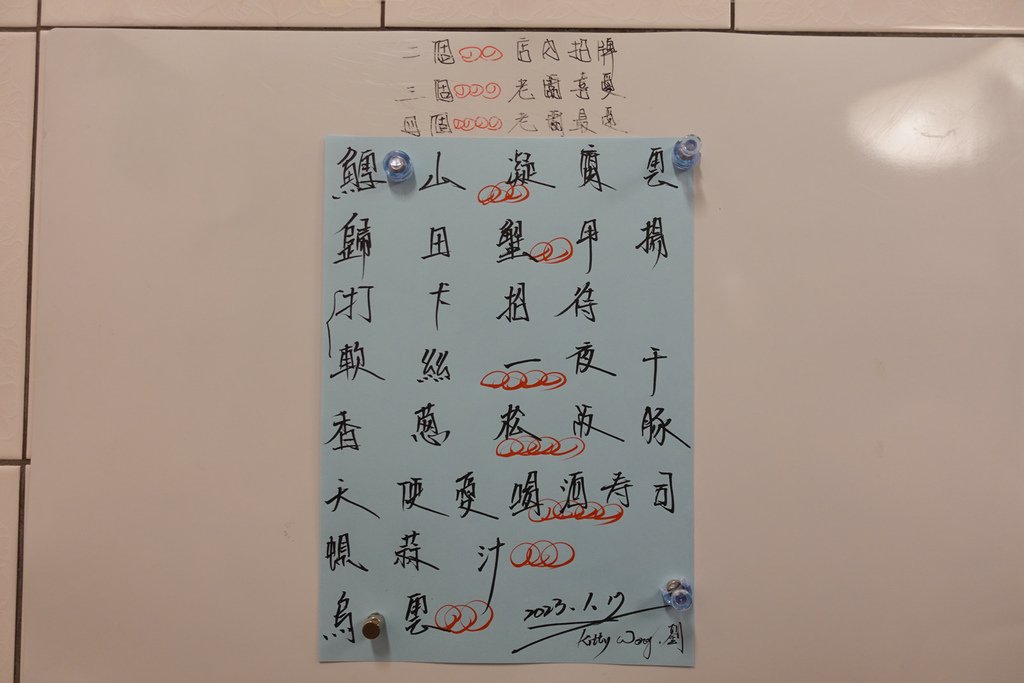 二個 店內招牌
三個 老闆喜愛
四個 老闆最愛
鱈山凝雲
歸田蟹甲揚
打卡招待
軟絲一夜干
香蔥松阪豚
天使愛喝酒寿司
蜆蒜汁
烏雲
2023.1.17
Kitty Wong.劉